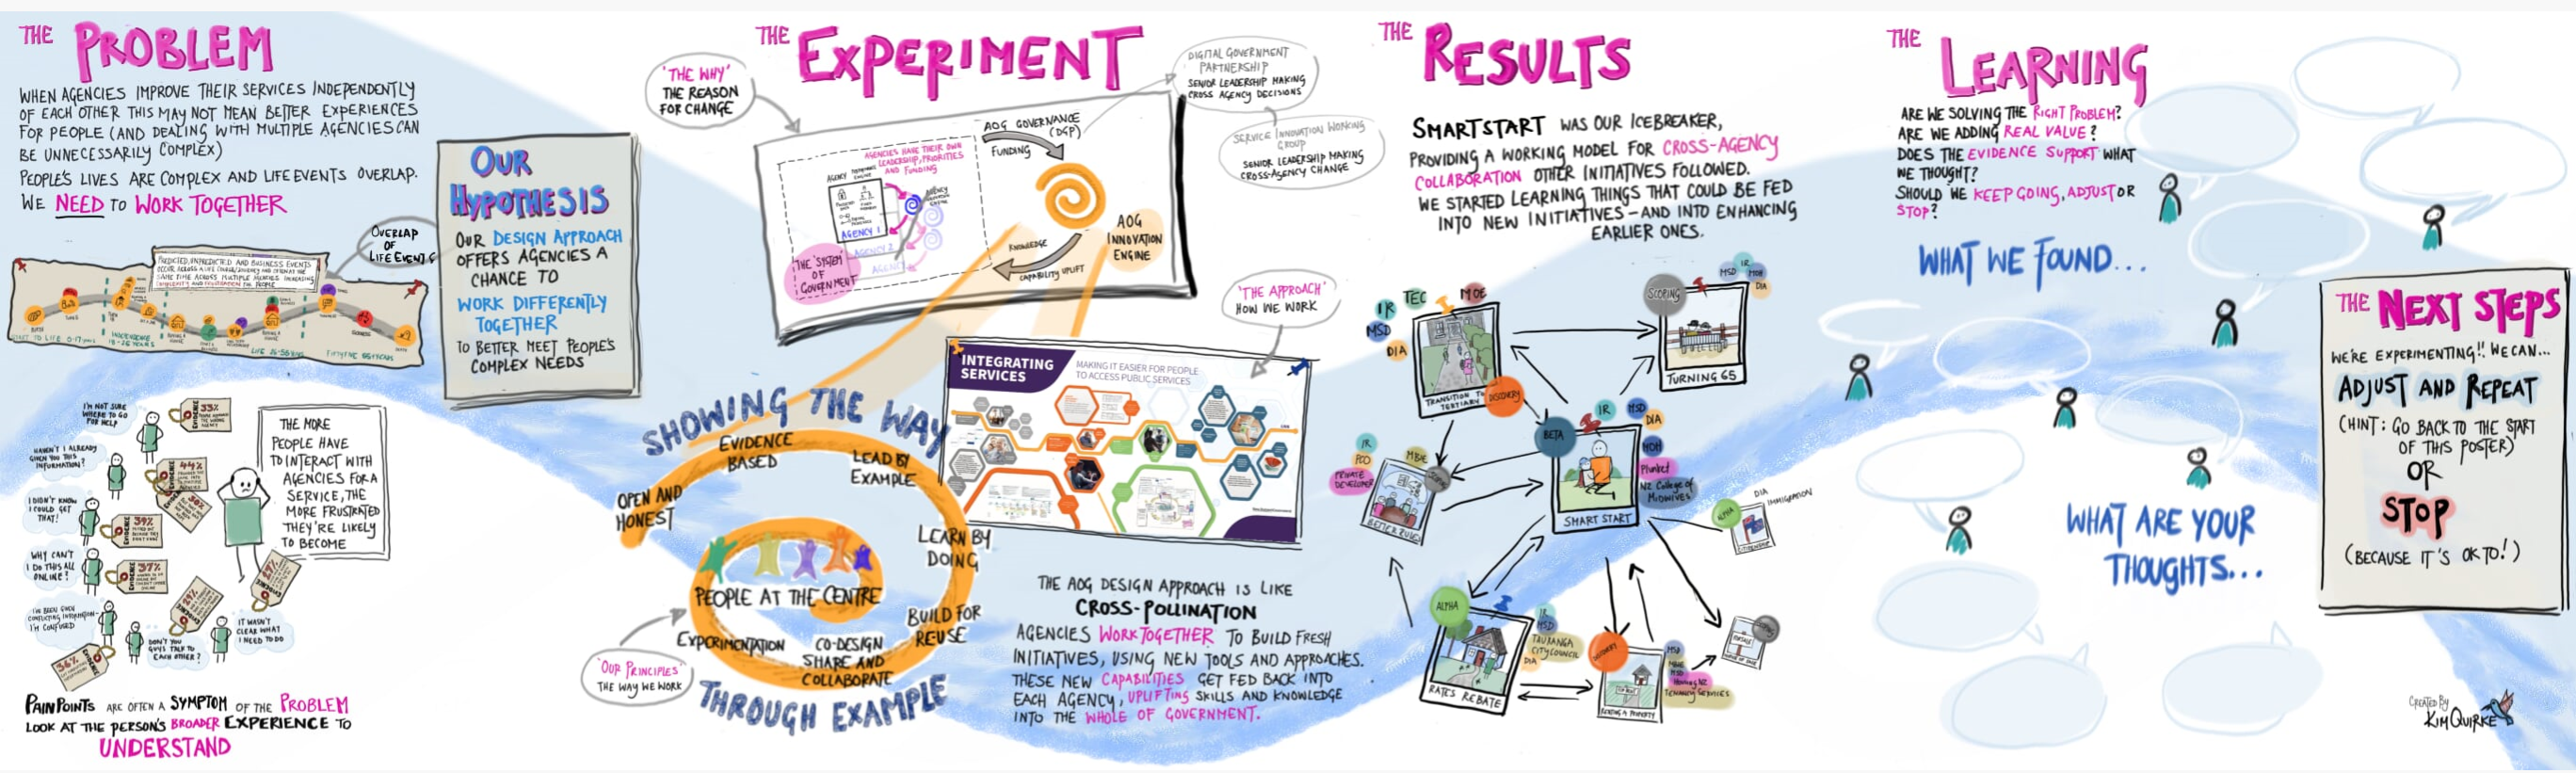 THE PROBLEM
WHEN AGENCIES IMPROVE THEIR SERVICES INDEPENDENTLY
OF EACH OTHER THIS MAY NOT MEAN BETTER EXPERIENCES
FOR PEOPLE (AND DEALING WITH MULTIPLE AGENCIES CAN
BE UNNECESSARILY COMPLEX)
PEOPLE'S LIVES ARE COMPLEX AND LIFE EVENTS OVERLAP.
WE NEED TO WORK TOGETHER
OVERLAP
OF
LIFE EVENTS
PREDICTED, UNPREDICTED AND BUSINESS EVENTS
START TO LIFE 0-17 years
INDEPENDENCE
18-25 YEARS
I'M NOT SURE
WHERE TO GO
FOR HELP
33%
HAVEN'T I ALREADY
GIVEN YOU THIS
INFORMATION?
44%
I DIDN'T KNOW
I COULD GET
THAT!
39%
WHY CAN'T
I DO THIS ALL
ONLINE!
37%
I'VE BEEN GIVEN
CONFLICTING INFORMATION-
I'M CONFUSED
DON'T YOU
GUYS TALK TO
EACH OTHER?
IT WASN'T
CLEAR WHAT
I NEED TO DO
36%
THE MORE
PEOPLE HAVE
TO INTERACT WITH
AGENCIES FOR A
SERVICE, THE
MORE FRUSTRATED
THEY'RE LIKELY
TO BECOME
PAIN POINTS ARE OFTEN A SYMPTOM OF THE PROBLEM
LOOK AT THE PERSON'S BROADER EXPERIENCE TO
UNDERSTAND
OUR
HYPOTHESIS
OUR DESIGN APPROACH
OFFERS AGENCIES A
CHANCE TO
WORK DIFFERENTLY
TOGETHER
TO BETTER MEET PEOPLE'S
COMPLEX NEEDS
THE EXPERIMENT
'THE WHY'
THE REASON
FOR CHANGE
DIGITAL GOVERNMENT
PARTNERSHIP
SENIOR LEADERSHIP MAKING
CROSS AGENCY DECISIONS
SERVICE INNOVATION WORKING
GROUP
SENIOR LEADERSHIP MAKING
CROSS-AGENCY CHANGE
AOG GOVERNANCE
(DGP)
FUNDING
AGENCIES HAVE THEIR OWN
LEADERSHIP, PRIORITIES
AND FUNDING
AGENCY 1
AGENCY 2
AGENCY
'THE SYSTEM
OF
GOVERNMENT'
KNOWLEDGE
CAPABILITY UPLIFT
AOG
INNOVATION
ENGINE
'THE APPROACH'
HOW WE WORK
INTEGRATING
SERVICES
MAKING IT EASIER FOR PEOPLE
TO ACCESS PUBLIC SERVICES
SHOWING THE WAY
EVIDENCE
BASED
LEAD BY
EXAMPLE
OPEN AND
HONEST
LEARN BY
DOING
PEOPLE AT THE CENTRE
BUILD FOR
REUSE
EXPERIMENTATION
CO-DESIGN
SHARE AND
COLLABORATE
'OUR PRINCIPLES'
THE WAY WE WORK
THROUGH EXAMPLE
THE AOG DESIGN APPROACH IS LIKE
CROSS-POLLINATION
AGENCIES WORK TOGETHER TO BUILD FRESH
INITIATIVES, USING NEW TOOLS AND APPROACHES.
THESE NEW CAPABILITIES GET FED BACK INTO
EACH AGENCY, UPLIFTING SKILLS AND KNOWLEDGE
INTO THE WHOLE OF GOVERNMENT.
THE RESULTS
SMARTSTART WAS OUR ICEBREAKER,
PROVIDING A WORKING MODEL FOR CROSS-AGENCY
COLLABORATION OTHER INITIATIVES FOLLOWED.
WE STARTED LEARNING THINGS THAT COULD BE FED
INTO NEW INITIATIVES - AND INTO ENHANCING
EARLIER ONES.
IR
TEC
MOE
MSD
DIA
TRANSITION TO
TERTIARY
DISCOVERY
SCOPING
MSD
IR
MOH
DIA
TURNING 65
BETA
IR
MSD
DIA
MOH
Plunket
NZ College of
Midwives
SMART START
IR
PCO
PRIVATE
DEVELOPER
MBIE
BETTER RULES
ALPHA
DIA
IMMIGRATION
CITIZENSHIP
ALPHA
IR
MSD
TAURANGA
CITY COUNCIL
DIA
RATES REBATE
DISCOVERY
Housing NZ
TENANCY SERVICES
RENTING A PROPERTY
THE LEARNING
ARE WE SOLVING THE RIGHT PROBLEM?
ARE WE ADDING REAL VALUE?
DOES THE EVIDENCE SUPPORT WHAT
WE THOUGHT?
SHOULD WE KEEP GOING, ADJUST OR
STOP?
WHAT WE FOUND...
WHAT ARE YOUR
THOUGHTS...
THE NEXT STEPS
WE'RE EXPERIMENTING!! WE CAN...
ADJUST AND REPEAT
(HINT: GO BACK TO THE START
OF THIS POSTER)
OR
STOP
(BECAUSE IT'S OK TO!)
CREATED BY
KIM QUIRKE